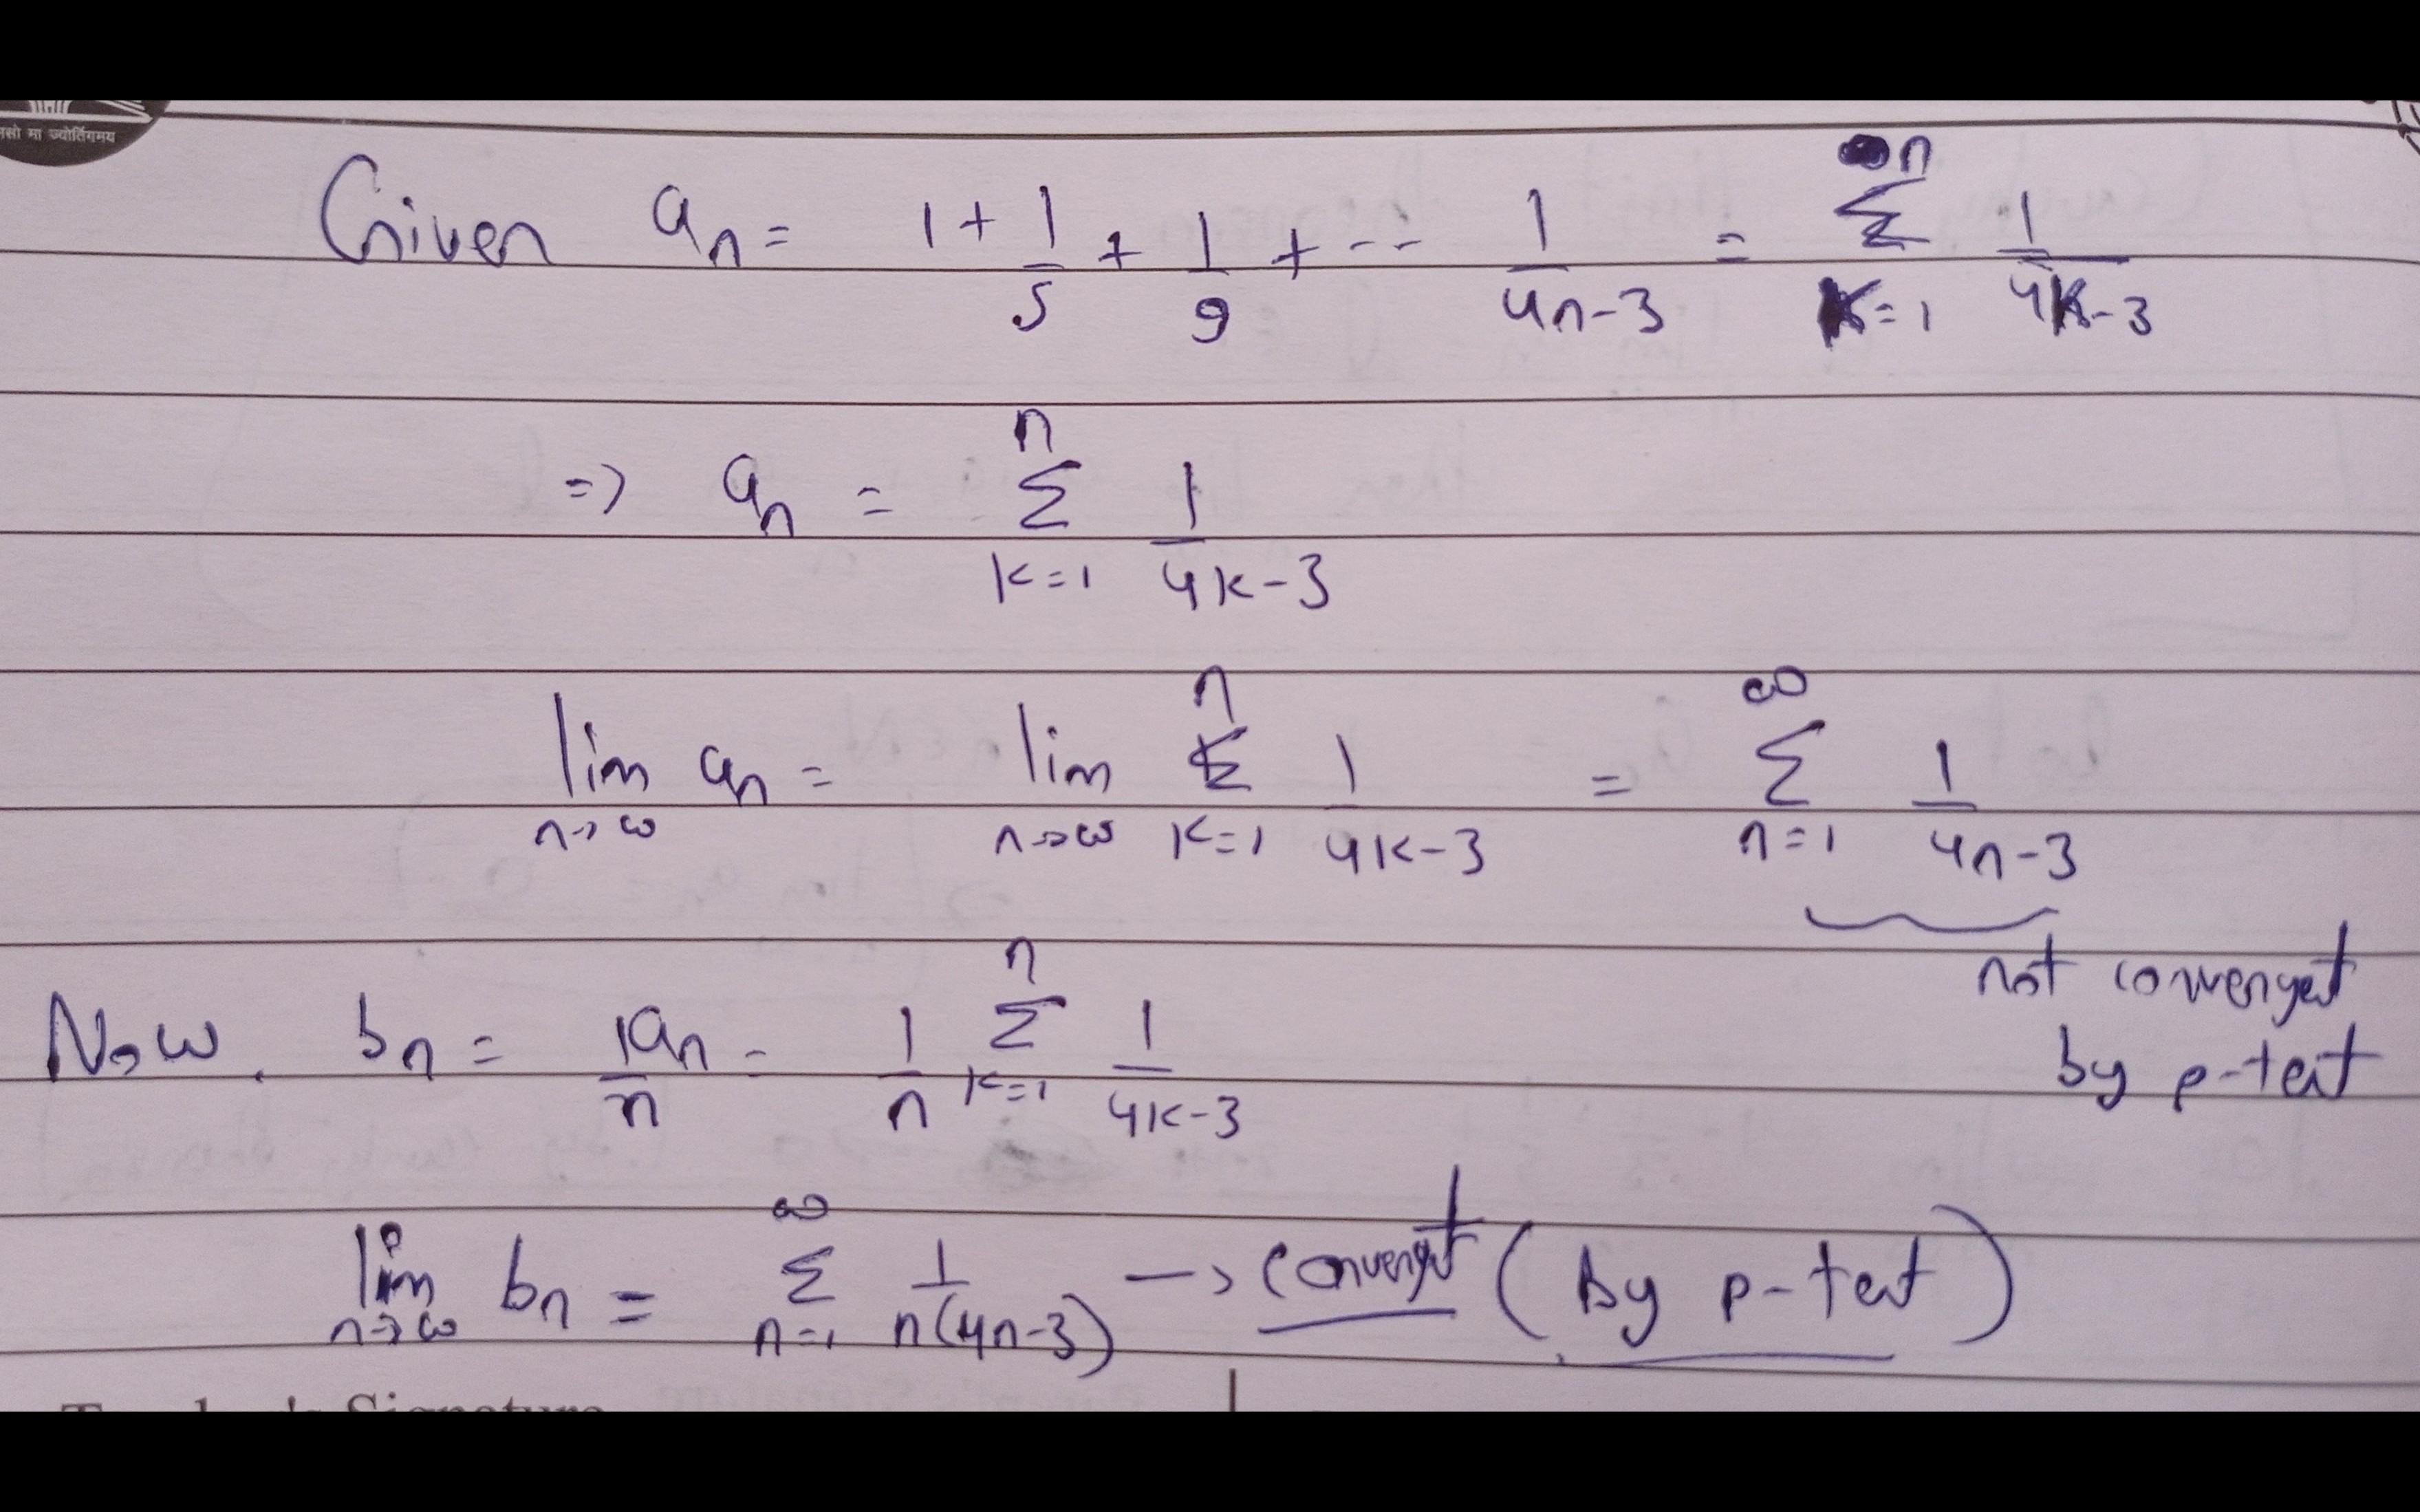 तमसो मा ज्योतिर्गमय
Given aₙ = 1 + 1/5 + 1/9 + -- 1/(4n-3) = Σ_{K=1}^{n} 1/(4K-3)
=> aₙ = Σ_{K=1}^{n} 1/(4K-3)
lim_{n→∞} aₙ = lim_{n→∞} Σ_{K=1}^{n} 1/(4K-3) = Σ_{n=1}^{∞} 1/(4n-3)
not convergent
by p-test
Now. bₙ = 1aₙ/n = 1/n Σ_{K=1}^{n} 1/(4K-3)
lim_{n→∞} bₙ = Σ_{n=1}^{∞} 1/(n(4n-3)) → convergt (By p-test)